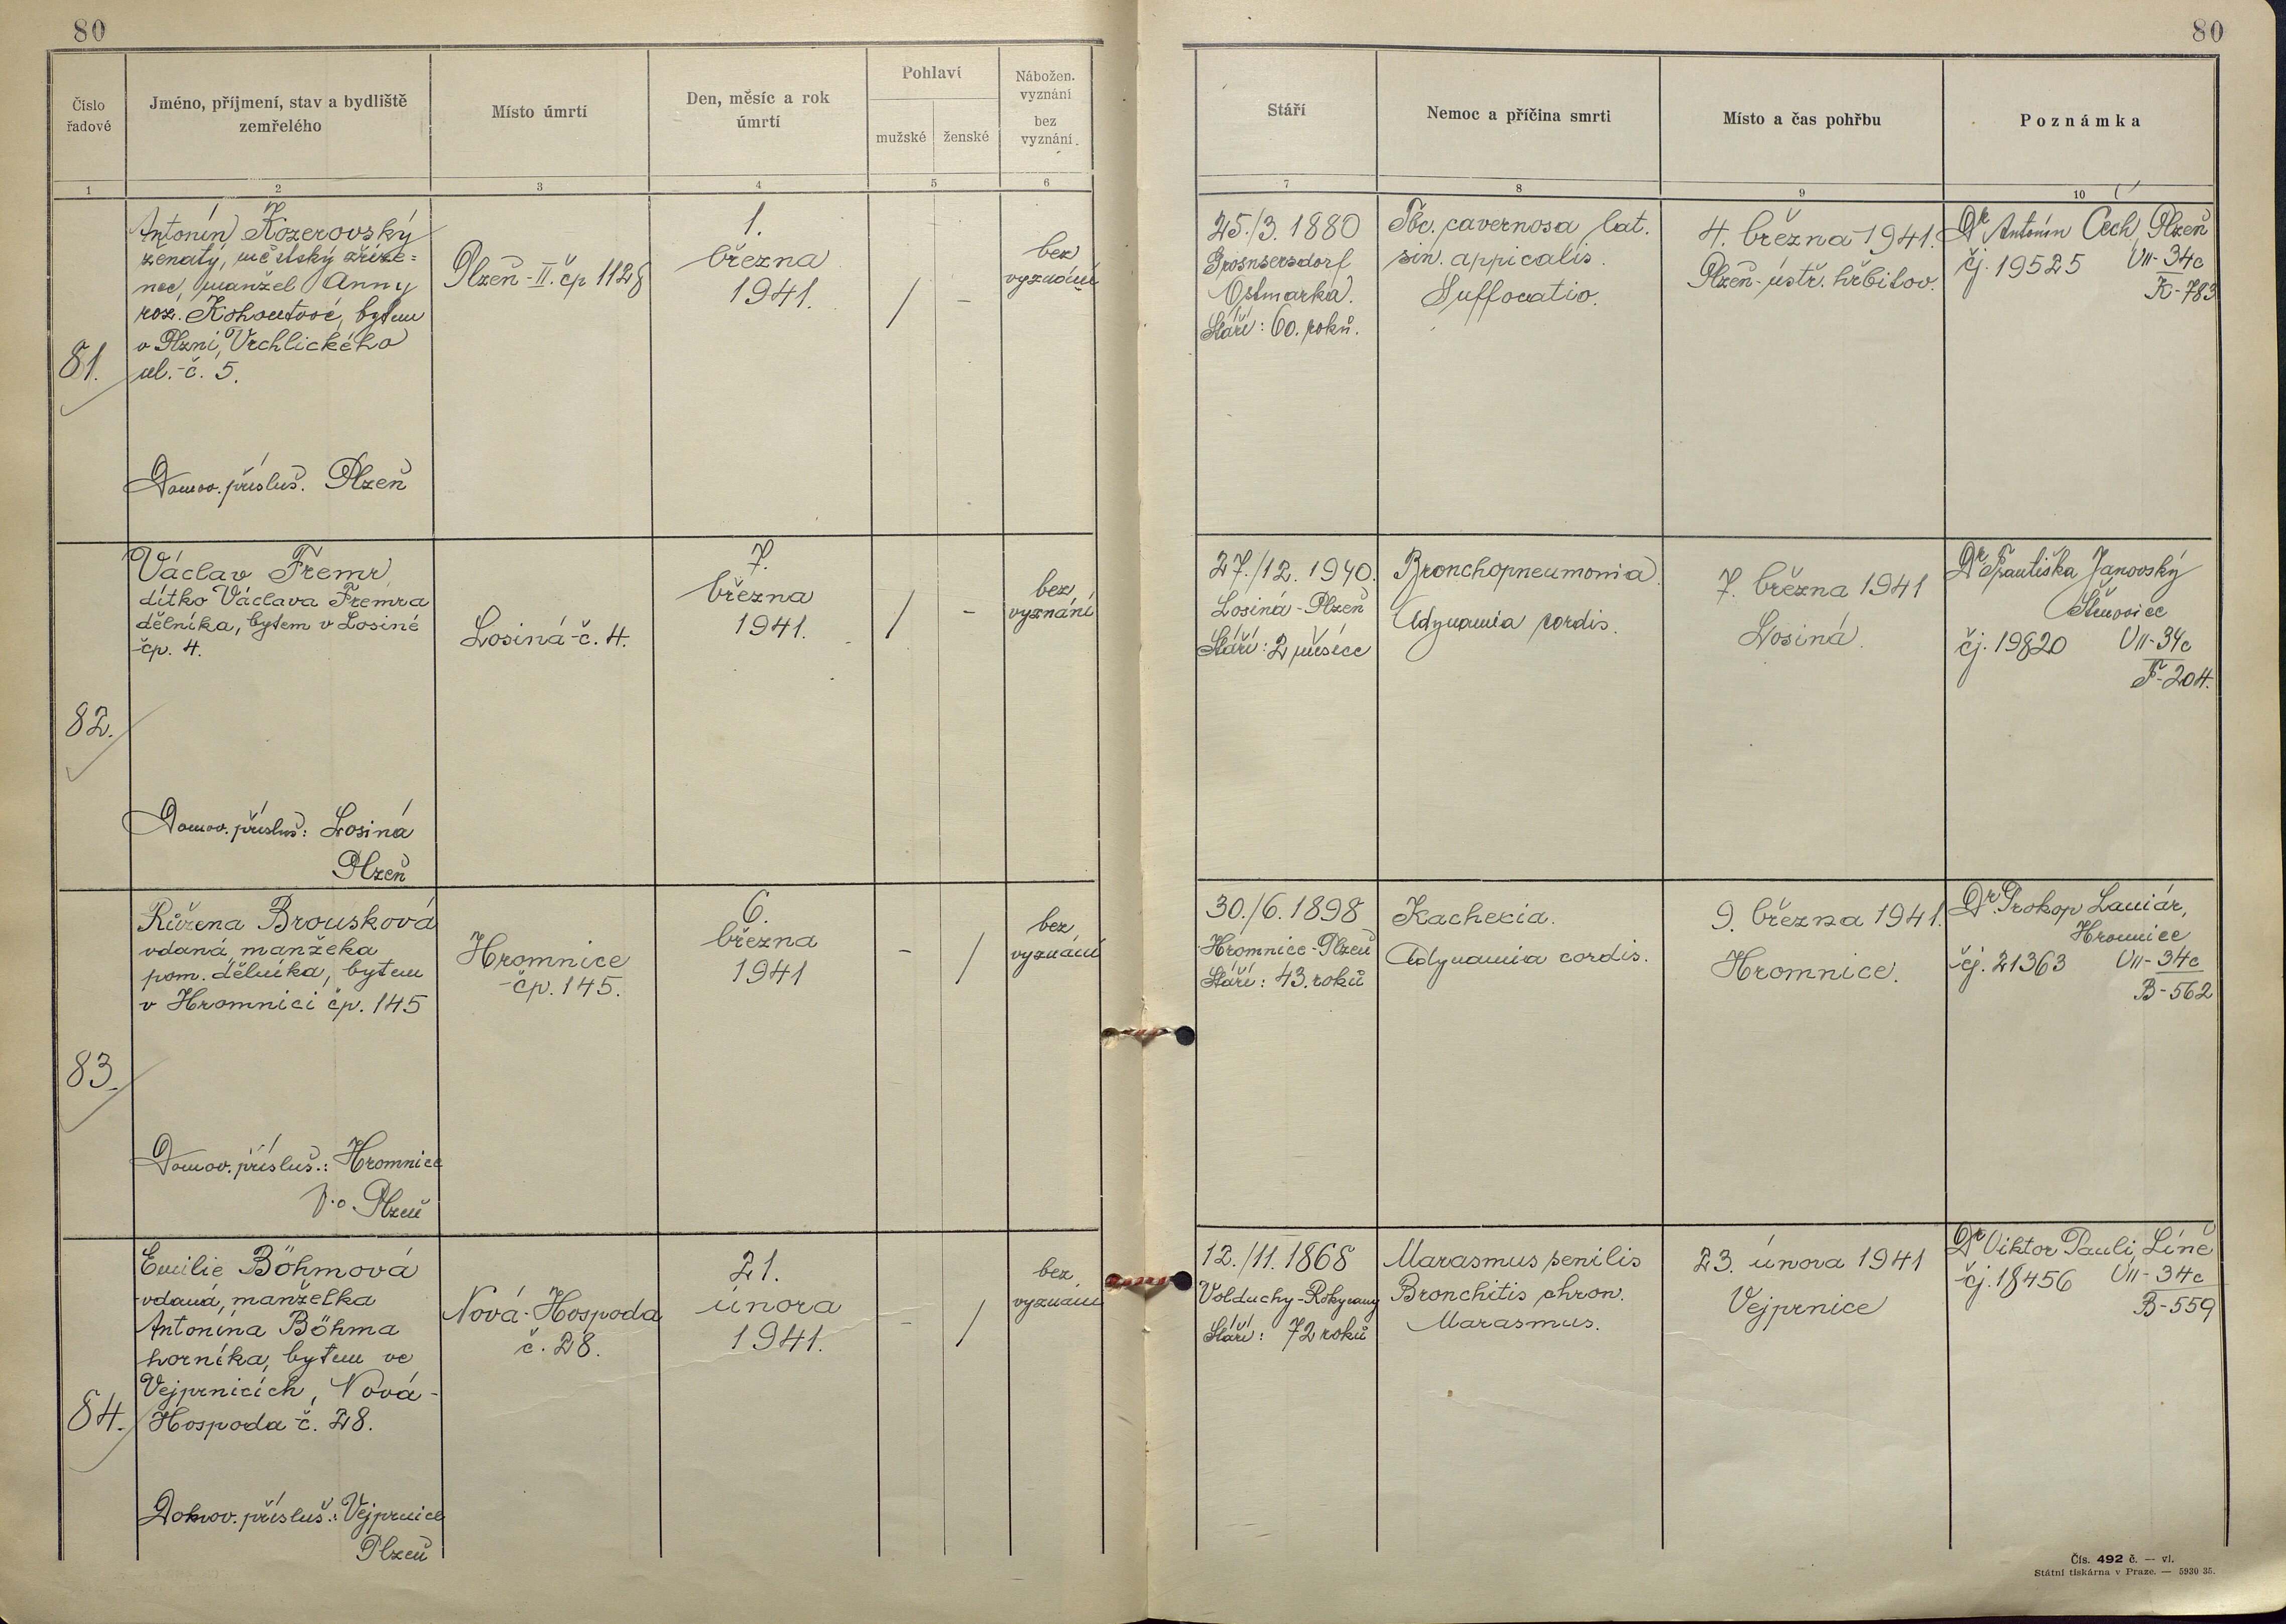 80
80
Číslo řadové
Jméno, příjmení, stav a bydliště zemřelého
Místo úmrtí
Den, měsíc a rok úmrtí
Pohlaví
mužské
ženské
Nábožen. vyznání
bez vyznání
Stáří
Nemoc a příčina smrti
Místo a čas pohřbu
Poznámka
1 2 3 4 5 6 7 8 9 10
81.
Antonín Kozerovský
ženatý, městský zříze=
nec, manžel Anny
roz. Kohoutové, bytem
v Plzni, Vrchlického
ul. č. 5.
Domov. přísluš. Plzeň
Plzeň-II. čp 1128
1.
března
1941.
/ -
bez
vyznání
25./3. 1880
Ostmarka.
Stáří: 60. roků.
Tbc. cavernosa lat.
sin. appicalis.
Suffocatio.
4. března 1941.
Plzeň-ústř. hřbitov.
Dr Antonín Čech, Plzeň
čj. 19525 VII-34c
K-783
82.
Václav Fremr
dítko Václava Fremra
dělníka, bytem v Losiné
čp. 4.
Domov. přísluš: Losiná
Plzeň
Losiná č. 4.
7.
března
1941.
/ -
bez
vyznání
27./12. 1940.
Losiná-Plzeň
Stáří: 2 měsíce
Bronchopneumonia
Adynamia cordis.
7. března 1941
Losiná.
Dr Františka Janovský
čj. 19820 VII-34c
F-204.
83.
Růžena Brousková
vdaná, manžeka
pom. dělníka, bytem
v Hromnici čp. 145
Domov. přísluš.: Hromnice
p.o. Plzeň
Hromnice
čp. 145.
6.
března
1941
- /
bez
vyznání
30./6. 1898
Hromnice-Plzeň
Stáří: 43. roků
Kachexia.
Adynamia cordis.
9. března 1941.
Hromnice.
Dr Prokop
Hromnice
čj. 21363 VII-34c
B-562
84.
Emilie Böhmová
vdaná, manželka
Antonína Böhma
horníka, bytem ve
Vejprnicích, Nová-
Hospoda č. 28.
Domov. přísluš.: Vejprnice
Plzeň
Nová-Hospoda
č. 28.
21.
února
1941.
- /
bez
vyznání
12./11. 1868
Volduchy-Rokycany
Stáří: 72 roků
Marasmus senilis
Bronchitis chron.
Marasmus.
23. února 1941
Vejprnice
Dr Viktor Pauli, Líně
čj. 18456 VII-34c
B-559
Čís. 492 č. — vl.
Státní tiskárna v Praze. — 5930 35.